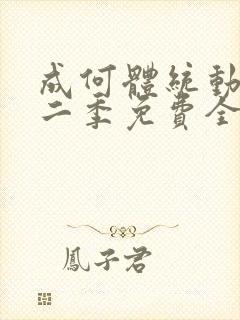 成何體統動
二季免費全
鳳子君